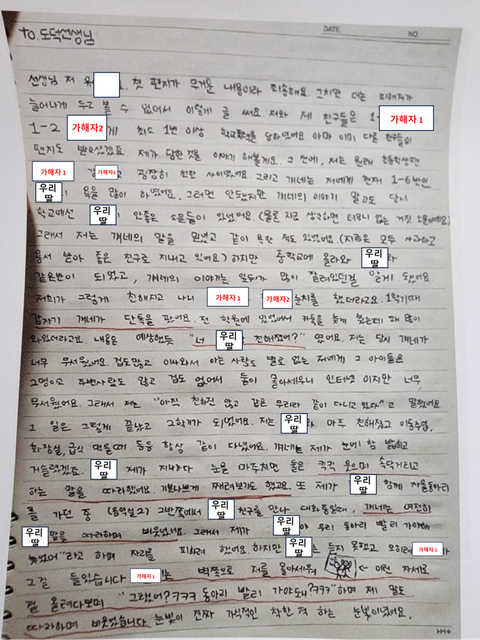 DATE. NO.
to. 도덕선생님
선생님 저 첫 편지가 무거운 내용이라 죄송해요. 그치만 더는 피해자가
늘어나게 두고 볼 수 없어서 이렇게 글 써요. 저와 제 친구들은 1- 가해자 1
1-2 가해자2 에게 최소 1번 이상 학교폭력을 당하였어요 아마 이미 다른 친구들이
편지도 받으셨겠죠 제가 당한 것을 이야기 해볼게요. 그 전에, 저는 원래 초등학생땐
가해자 1 가해자2 굉장히 친한 사이였어요 그리고 걔네는 저에게 현재 1-6반인
우리 딸 욕을 많이 하였어요. 그러면 안됐지만 걔네의 이야기 말고도 당시
학교에선 우리 딸 안좋은 소문들이 있었어요 (물론 지금 생각하면 터무니 없는 거짓 소문이에요)
그래서 저는 걔네의 말을 믿었고 같이 욕한 적도 있었어요. (지금은 모두 사과하고
용서 받아 좋은 친구로 지내고 있어요) 하지만 중학교에 올라와 우리 딸
같은반이 되었고, 걔네의 이야기는 일부가 많이 잘려있던걸 알게 됐어요
저희가 그렇게 친해지고 나니 가해자 1 가해자2 눈치를 했더라고요. 1학기때
갑자기 걔네가 단톡을 팠어요. 전 학원에 있었어서 카톡을 늦게 봤는데 꽤 많이
와있더라고요. 내용은 예상했듯 "너 우리 딸 친해졌어?" 였어요. 저는 당시 걔네가
너무 무서웠어요. 겁도많고 이사와서 아는 사람도 별로 없는 저에게 그 아이들은
2명이고 주변사람도 많고 겁도 없어서 둘이 몰아세우니 인터넷 이지만 너무
무서웠어요. 그래서 저는 "아직 친해진 않고 같은 무리라 같이 다니고 있다"고 말했어요
그 일은 그렇게 끝났고 2학기가 되었어요. 저는 우리 딸 아주 친해졌고 이동수업,
화장실, 급식 먹을때 등등 항상 같이 다녔어요. 걔네는 제가 눈에 참 밟히고
거슬렸겠죠. 우리 딸 제가 지나가다 눈을 마주치면 둘은 쿡쿡 웃으며 속닥거리고
하는 말을 따라했어요 기분나쁘게 째려보기도 했고요. 또 제가 우리 딸 함께 자율동아리
를 가던 중 (음악실2) 2반쪽에서 우리 딸 친구를 만나 대화중일때, 걔네는 여전히
우리 딸 말을 따라하며 비웃었어요. 그래서 제가 우리 딸 야 우리 동아리 빨리 가야해
늦었어" 라고 하며 자리를 피하려 했어요 하지만 우리 딸 는 듣지 못했고 오히려 가해자 1 가
그걸 들었습니다 가해자 1 는 벽쪽으로 저를 몰아세워 ← 이런 자세요
걸 올려다보며 "그랬어?ㅋㅋㅋ 동아리 빨리 가야돼?ㅋㅋ"하며 제 말도
따라하며 비웃었습니다. 눈빛이 진짜 가식적인 착한 척 하는 눈빛이었어요.